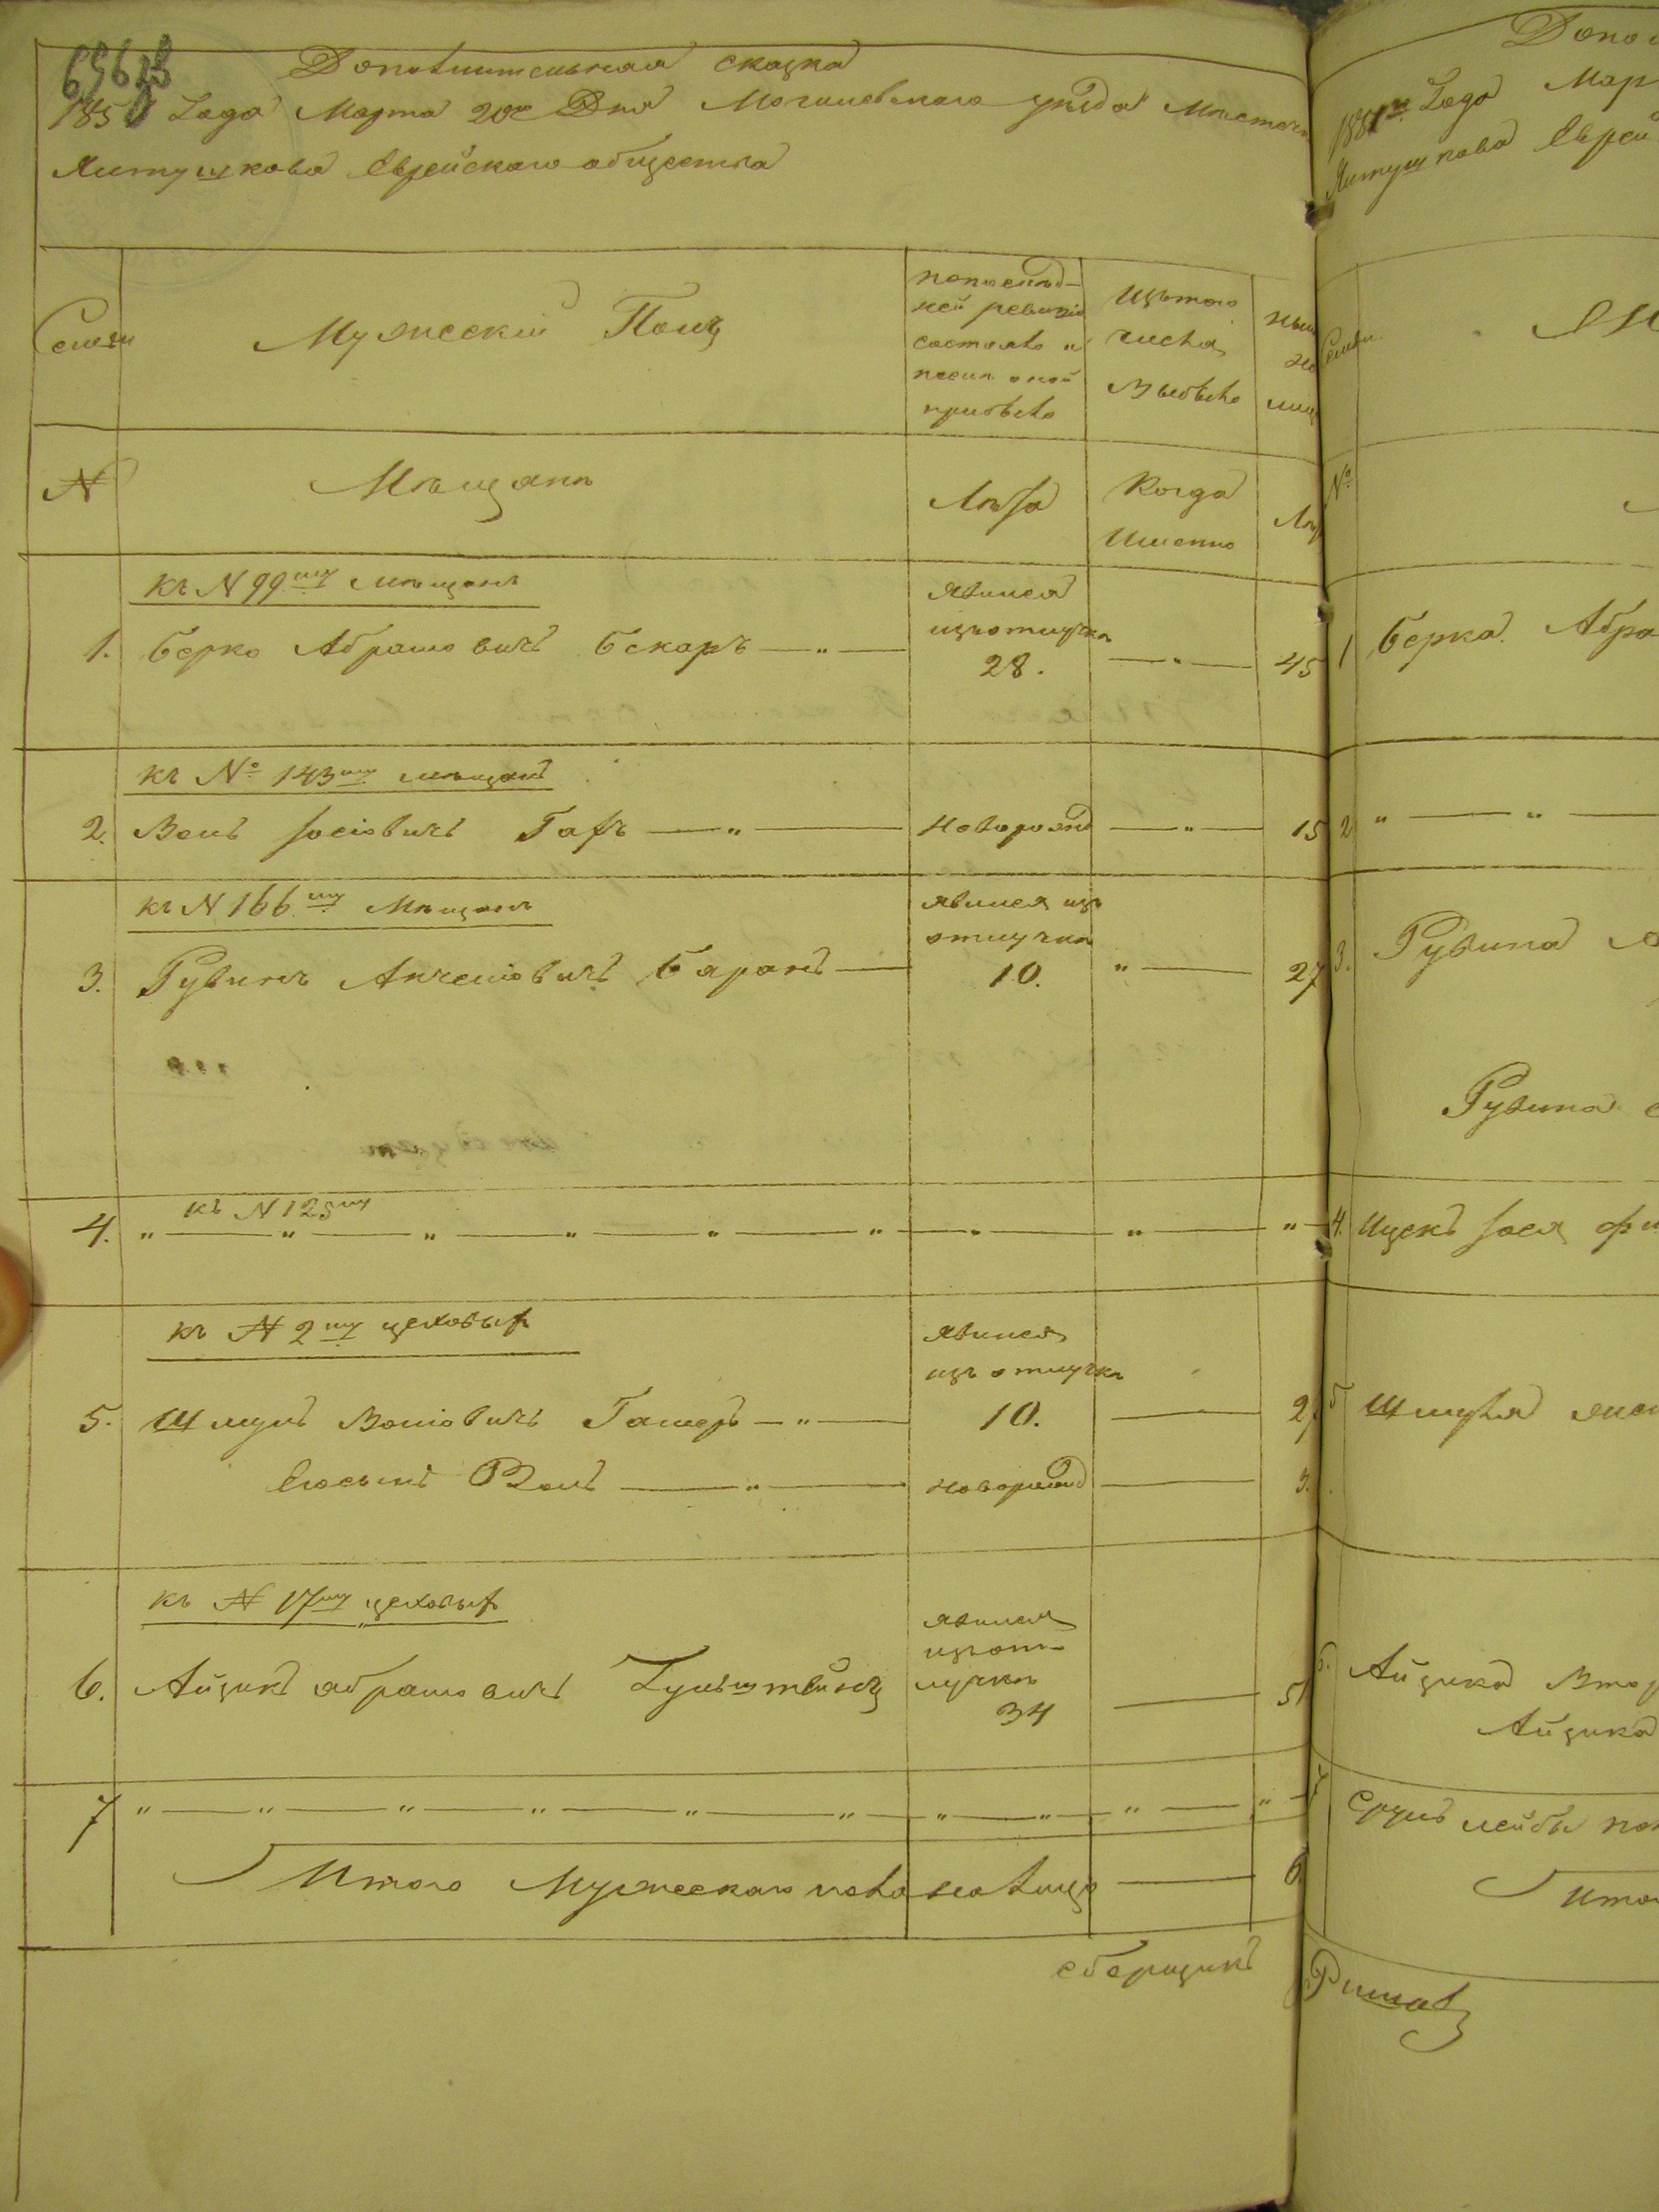 Дополнительная сказка
185 Года Марта 20го Дня Могилевскаго уезда Местечка
Ялтушкова Еврейскаго общества
Семьи
Мужескій Полъ
по послѣд-
ней ревизіи
состояло и
послѣ оной
прибыло
Изътого
числа
Выбыло
N
Мѣщанѣ
Лѣта
Когда
Именно
къ N 99му мѣщанъ
1. Берко Абрамовичъ Бекаръ — " —
явился
изъотлучки
28.
— " —
45
къ № 143му мѣщанъ
2. Волъ Іосіовичъ Гафъ — " —
Новорожд
— " —
15
къ N 166му Мѣщанъ
3. Рувинъ Анчеліовичъ Баранъ —
явился изъ
отлучки
10.
" —
27
къ N 125му
4. " — " — " — " — " — " — " — " — "
къ N 2му цеховыхъ
5. Шмуль Воліовичъ Гамеръ — " —
явился
изъ отлучки
10.
—
27
Еюсынъ Волъ — " —
новорожд
—
3.
къ N 17му цеховыхъ
6. Айзикъ абрамовичъ Гульштейнъ
явился
изъот-
лучки
34
—
51
7 " — " — " — " — " — " — " — " — " — "
Итого Мужескаго пола налицо — 6.
сборщикъ
Допол
1851го Года Мар
Ялтушкова Еврей
Семьи
№
1 Берка Абра
2 " — " —
3. Рувина
Рувина
4. Ицекъ Іося
5 Шмуля жен
6. Айзика Втор
Айзика
7 Сруль лейбы
Итого